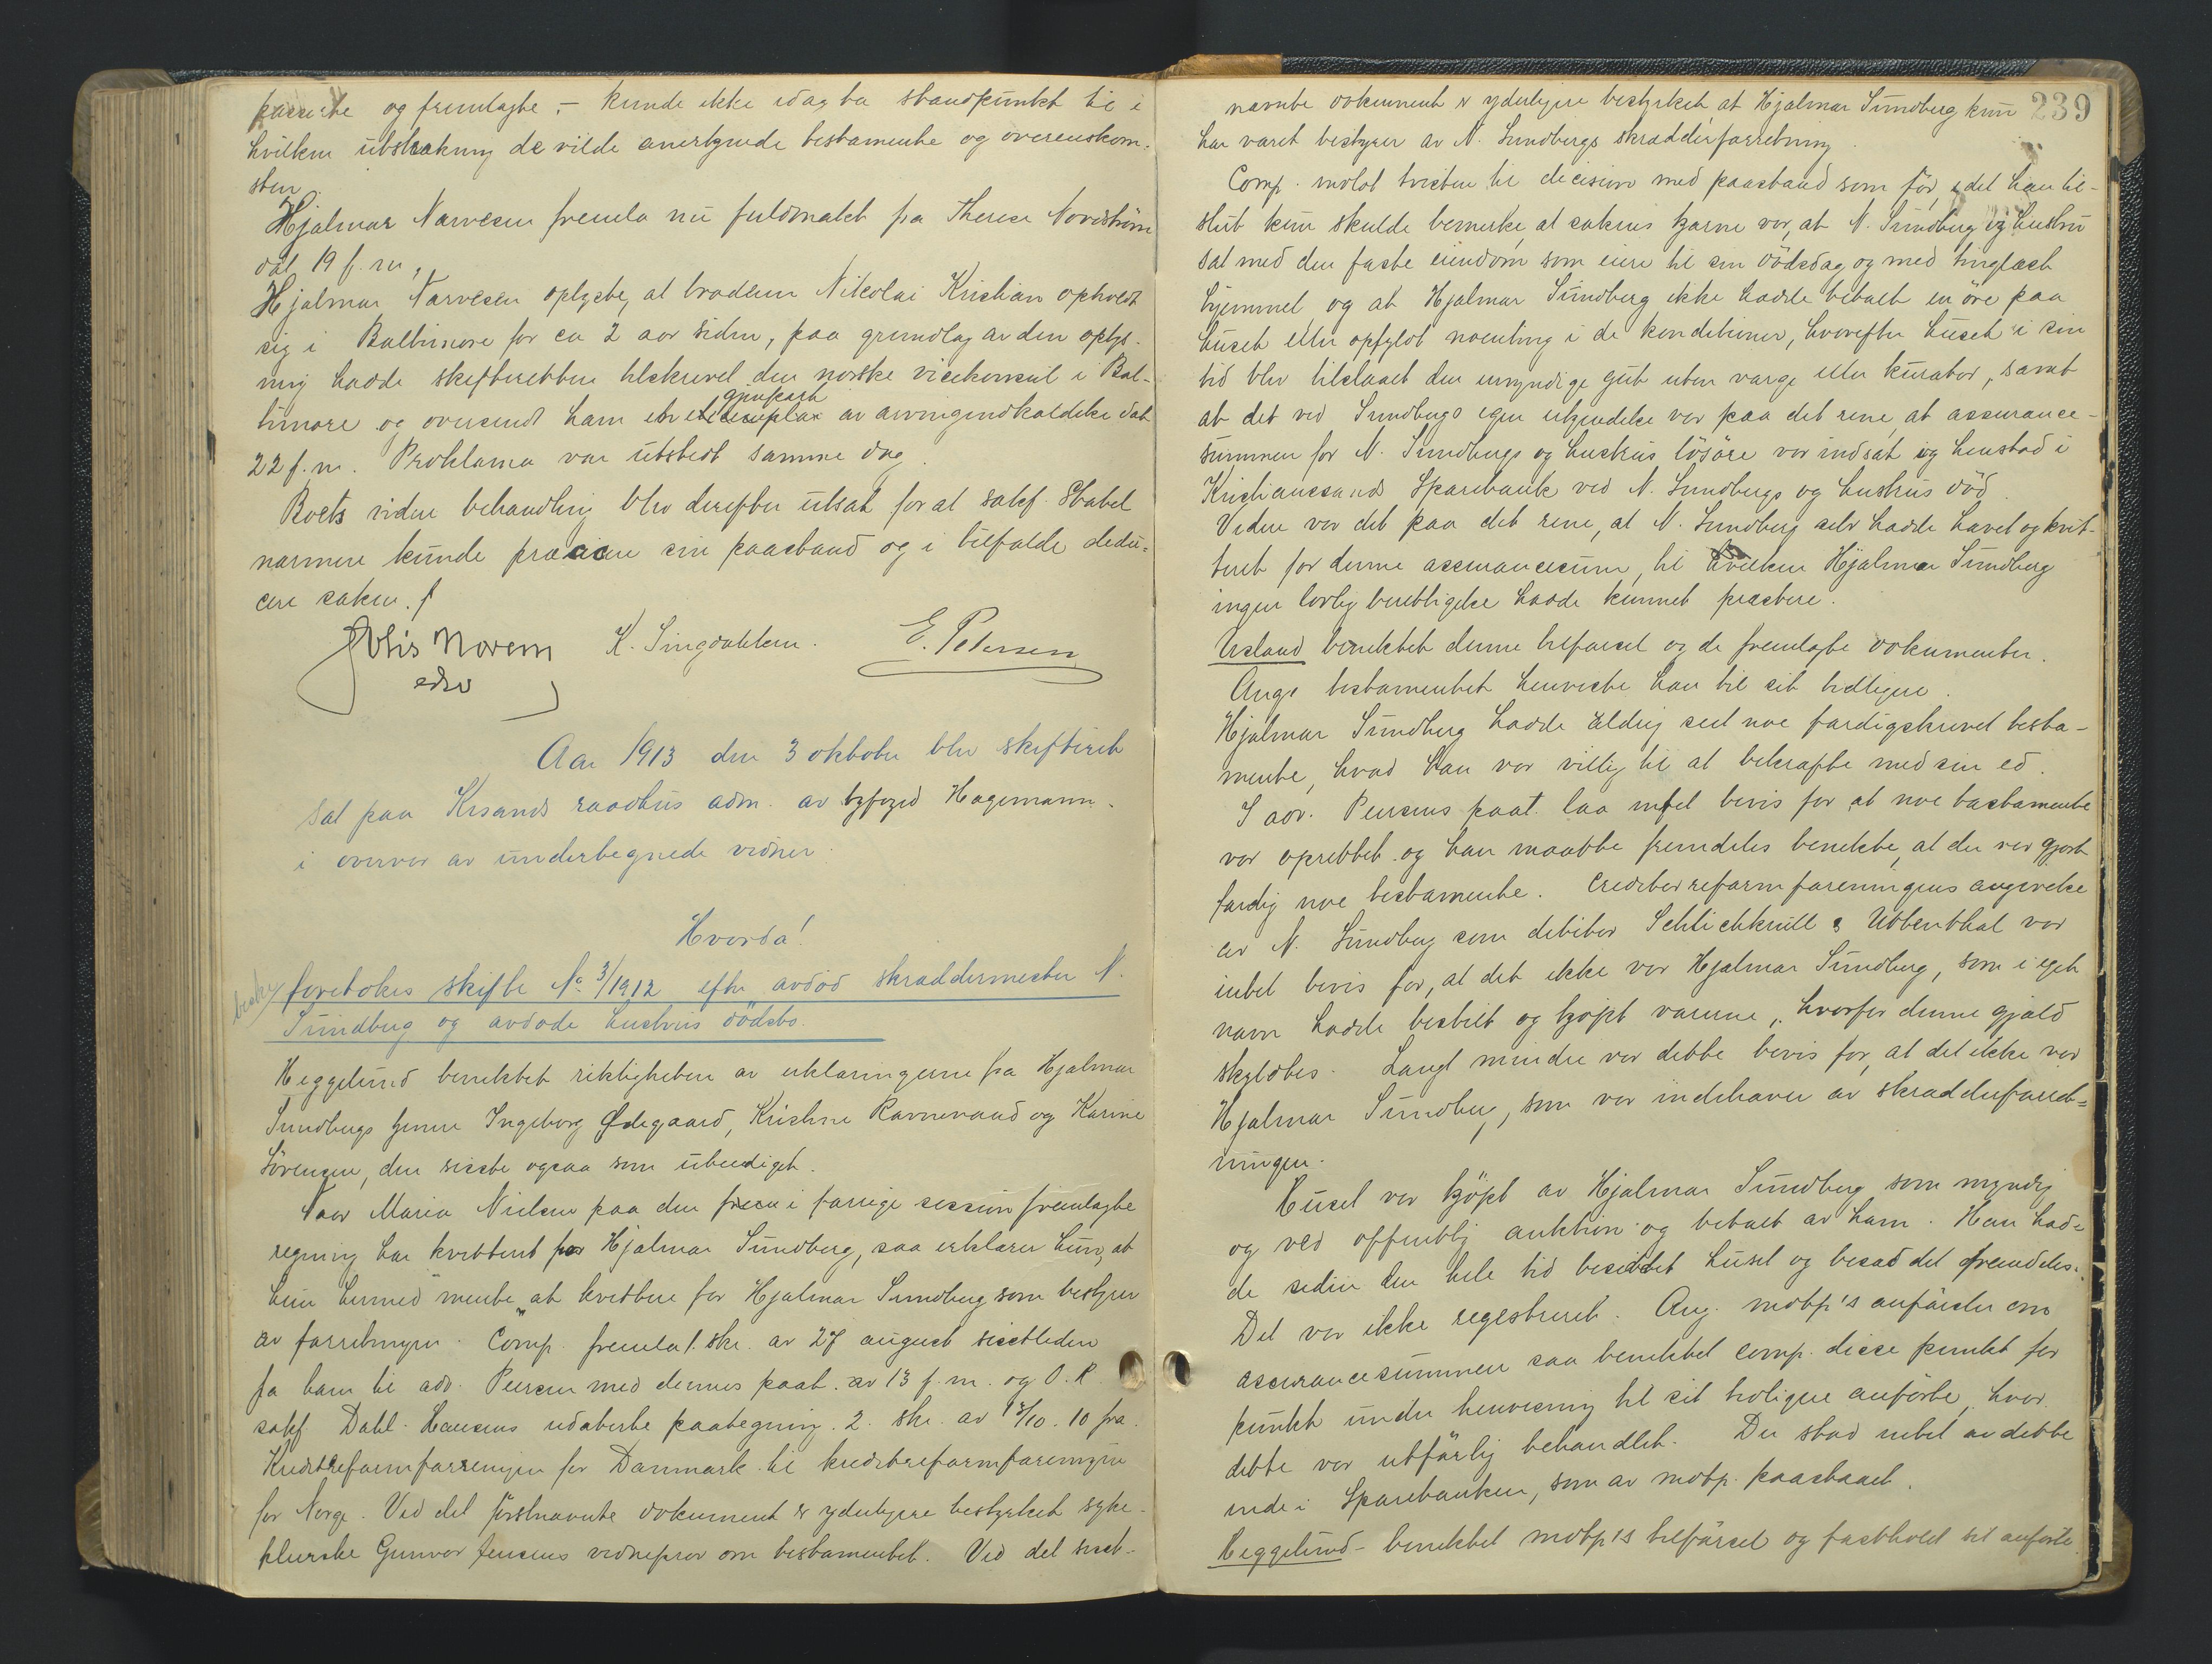 passerte og fremlagte, – kunde ikke idag ta standpunkt til i
hvilken utstrækning de vilde anerkjende testamente og overenskom-
sten.
Hjalmar Narvesen fremla nu fuldmakt fra Therese Nordstrøm
dat. 19 f. m.,
Hjalmar Narvesen oplyste, at brodren Nikolai Kristian opholdt
sig i Baltimore for ca 2 aar siden, paa grundlag av den oplys-
ning hadde skifteretten tilskrevet den norske vicekonsul i Bal-
timore og oversendt ham et genpart av arvingindkaldelse dat.
22 f. m. Proklama var utstedt samme dag.
Boets videre behandling blev derefter utsat for at sakf. Stabel
nærmere kunde præcisere sin paastand og i tilfælde dedu-
cere saken./
Nils Norem K. Singdahlsen. E. Petersen
edsv
Aar 1913 den 3 oktober blev skifteret
sat paa Krsands raadhus adm. av byfoged Hagemann
i overvær av undertegnede vidner.
Hvorda!
foretokes skifte No 3/1912 efter avdød skræddermester N.
Sundberg og avdøde hustrus dødsbo.
Heggelund benektet riktigheten av erklæringerne fra Hjalmar
Sundbergs Ingeborg Ødegaard, Kristine Ravnevand og Karine
Sørensen, den sidste ogsaa som ubeediget.
Naar Maria Nielsen paa den i forrige session fremlagte
regning har kvittert for Hjalmar Sundberg, saa erklærer hun, at
hun hermed mente "at kvittere for Hjalmar Sundberg som bestyrer
av forretningen. Comp. fremla 1. skr. av 27 august sisstleden
fra ham til adv. Peersen med dennes paat. av 13 f. m. og O. R.
sakf. Dahl-Hansens udaterte paategning. 2. skr. av 13/10. 10 fra
Kreditreformforeningen for Danmark til kreditreformforeningen
for Norge. Ved det førstnævnte dokument er yderligere bestyrket syke-
pleierske Gunvor Jensens vidneprov om testamentet. Ved det sisst-
239
nævnte dokument er yderligere bestyrket at Hjalmar Sundberg kun
har været bestyrer av N. Sundbergs skrædderforretning.
Comp. indlot tvisten til decision med paastand som før, idet han til-
slut kun skulde bemerke, at sakens kjærne var, at N. Sundberg og hustru
sat med den faste eiendom som eiere til sin dødsdag og med tinglæst
hjemmel og at Hjalmar Sundberg ikke hadde betalt en øre paa
huset eller opfyldt noenting i de konditioner, hvorefter huset i sin
tid blev tilslaaet den umyndige gut uten værge eller kurator, samt
at det ved Sundbergs egen erkjendelse var paa det rene, at assurance-
summen for N. Sundbergs og hustrus løsøre var indsat og henstod i
Kristianssands Sparebank ved N. Sundbergs og hustrus død.
Videre var det paa det rene, at N. Sundberg selv hadde hævet og kvit-
teret for denne assurancesum, til hvilken Hjalmar Sundberg
ingen lovlig berettigelse hadde kunnet præstere.
Usland benektet denne tilførsel og de fremlagte dokumenter.
Ang. testamentet henviste han til sit tidligere.
Hjalmar Sundberg hadde aldrig set noe færdigskrevet testa-
mente, hvad han var villig til at bekræfte med sin ed.
I adv. Peersens paat. laa intet bevis for at noe testamente
var oprettet og han maatte fremdeles benekte, at der var gjort
færdig noe testamente. Creditorreformforeningens angivelse
av N. Sundberg som debitor Schlichkrüll & Uttenthal var
intet bevis for, at det ikke var Hjalmar Sundberg, som i eget
navn hadde bestilt og kjøpt varerne, hvorfor denne gjæld
skyldtes. Langt mindre var dette bevis for, at det ikke var
Hjalmar Sundberg, som var indehaver av skrædderforret-
ningen.
Huset var kjøpt av Hjalmar Sundberg som myndig
og ved offentlig auktion og betalt av ham. Han had-
de siden den hele tid besiddet huset og besad det fremdeles.
Det var ikke registreret. Ang. motp's anførsler om
assurancesummen saa benektet comp. disse punkt for
punkt under henvisning til sit tidligere anførte, hvor
dette var utførlig behandlet. Der stod intet av dette
inde i Sparebanken, som av motp. paastaaet.
Heggelund – benektet motp's tilførsel og fastholdt sit anførte